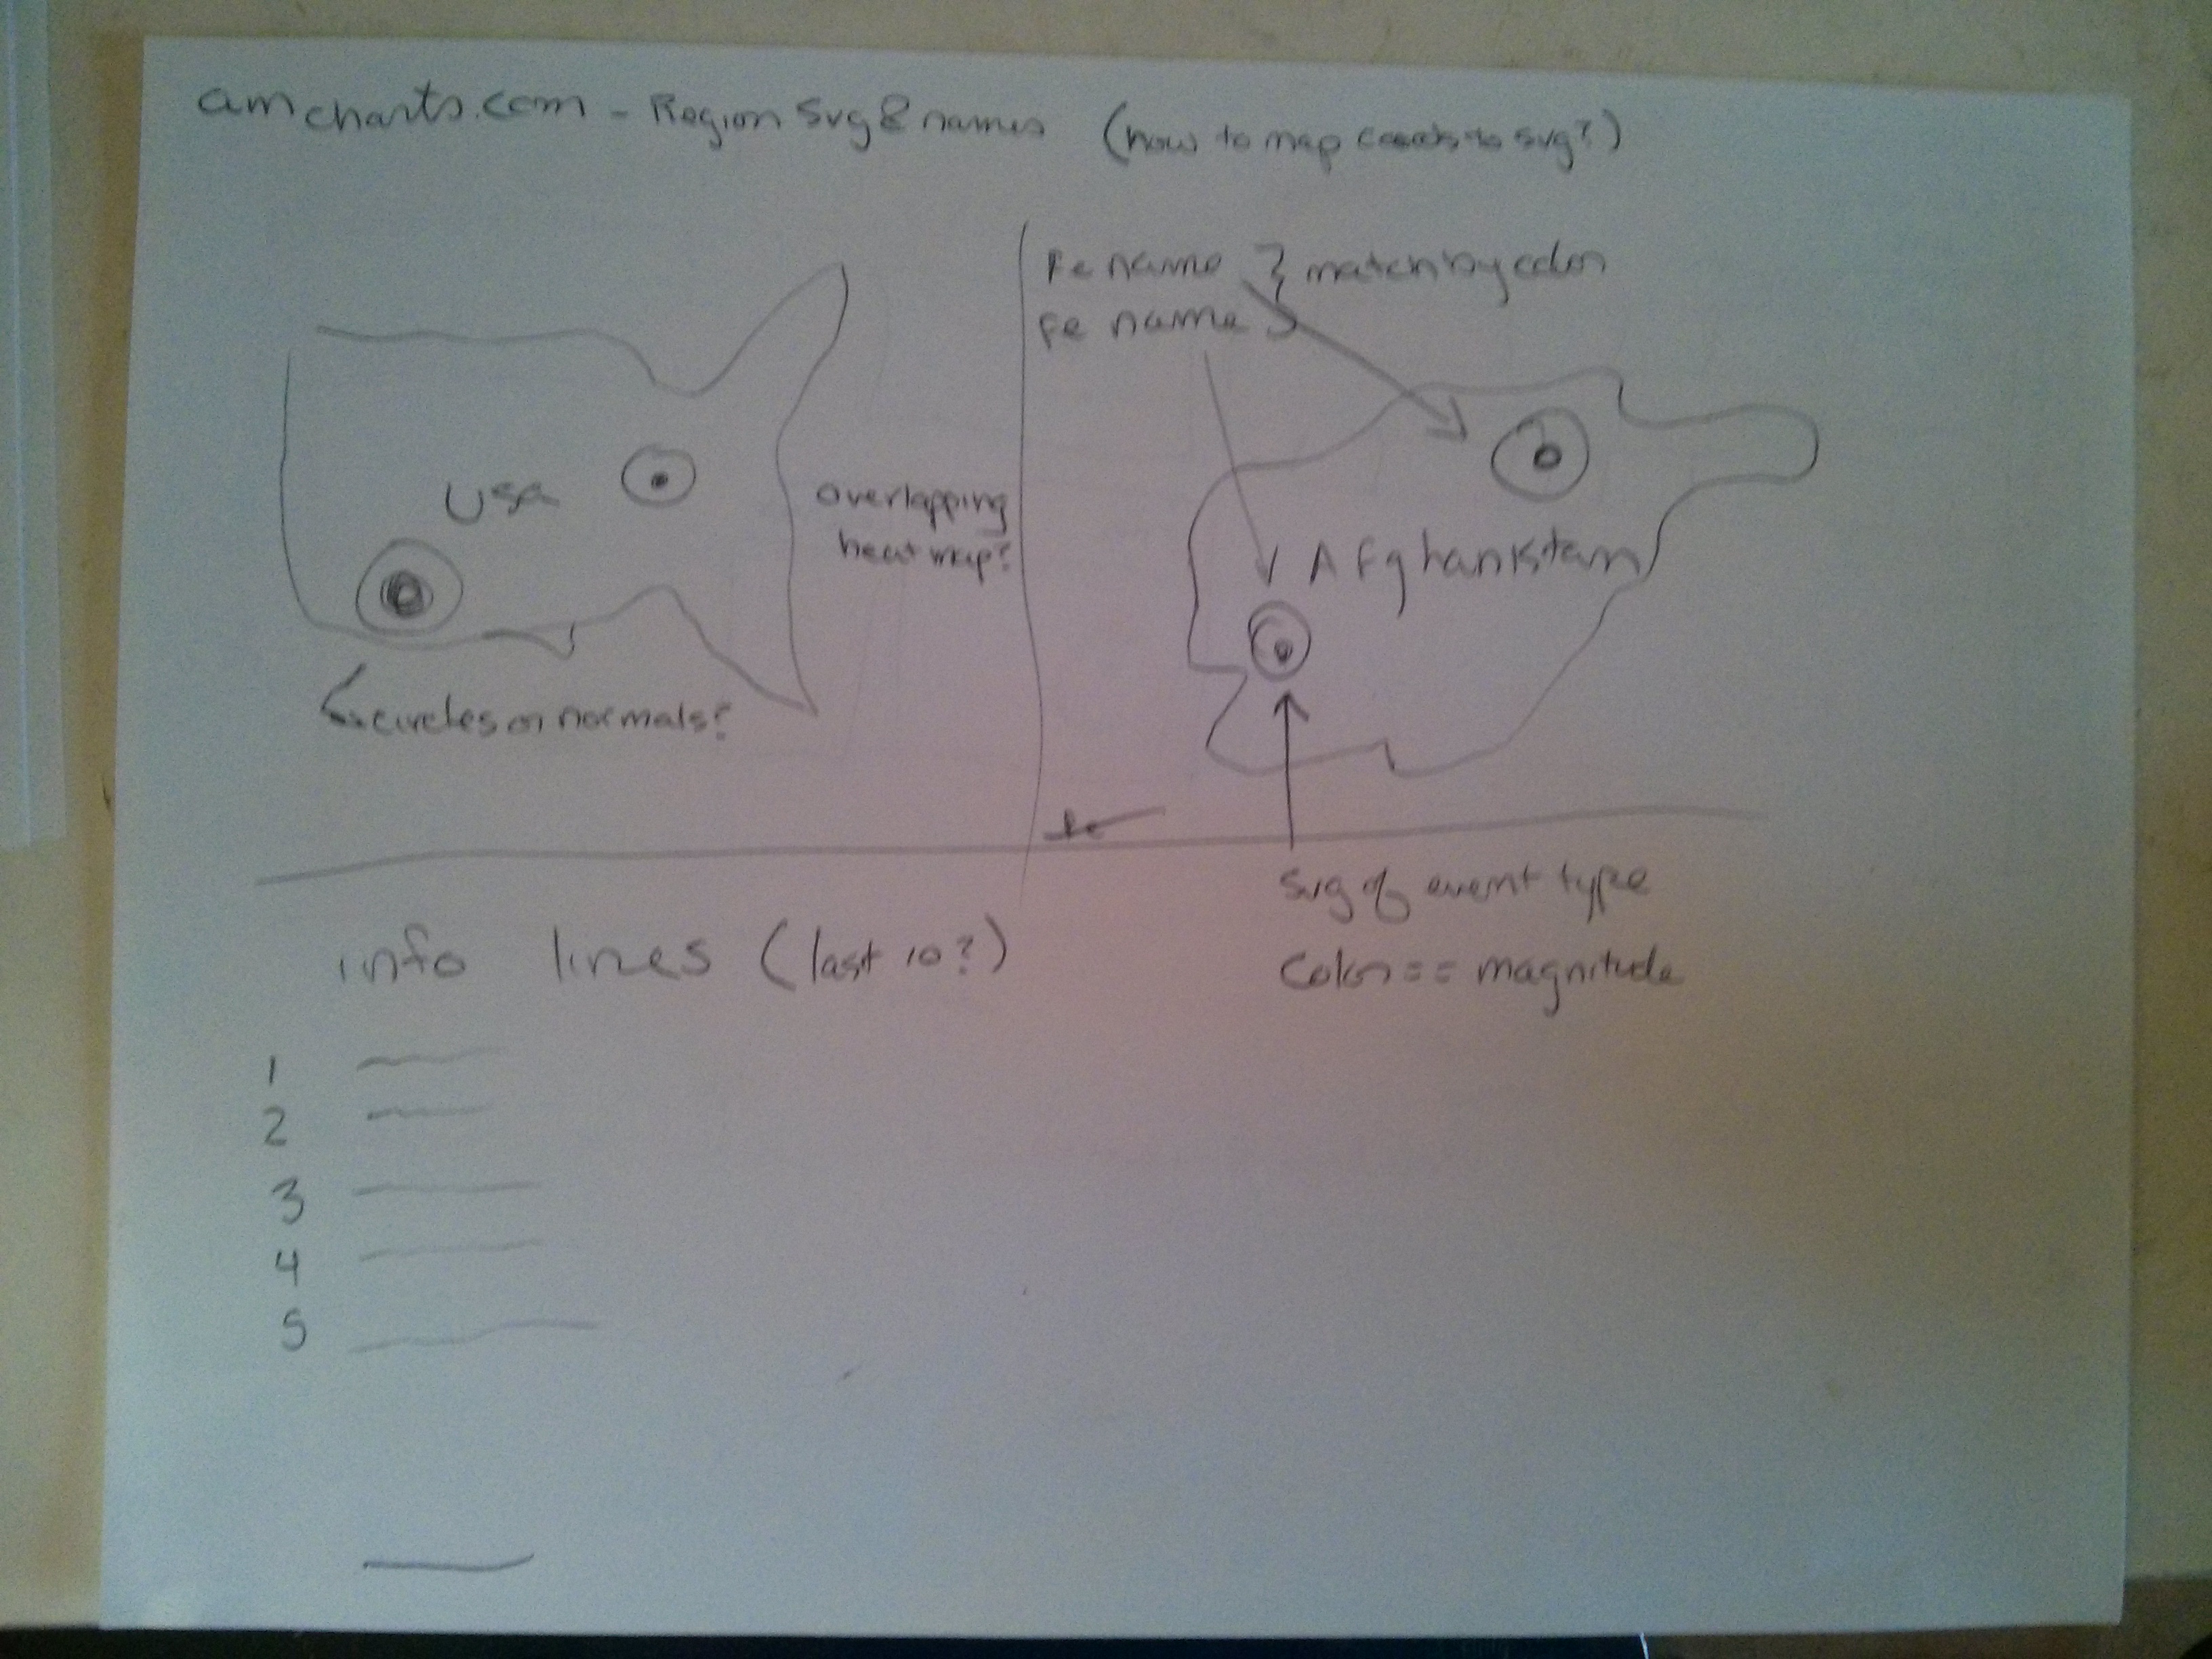 amcharts.com - Region Svg & names (how to map coords to svg?)
USA
overlapping
heat map?
circles or normals?
Fe name } match by color
Fe name
Afghanistan
Fe
svg of event type
Color == magnitude
info lines (last 10?)
1
2
3
4
5